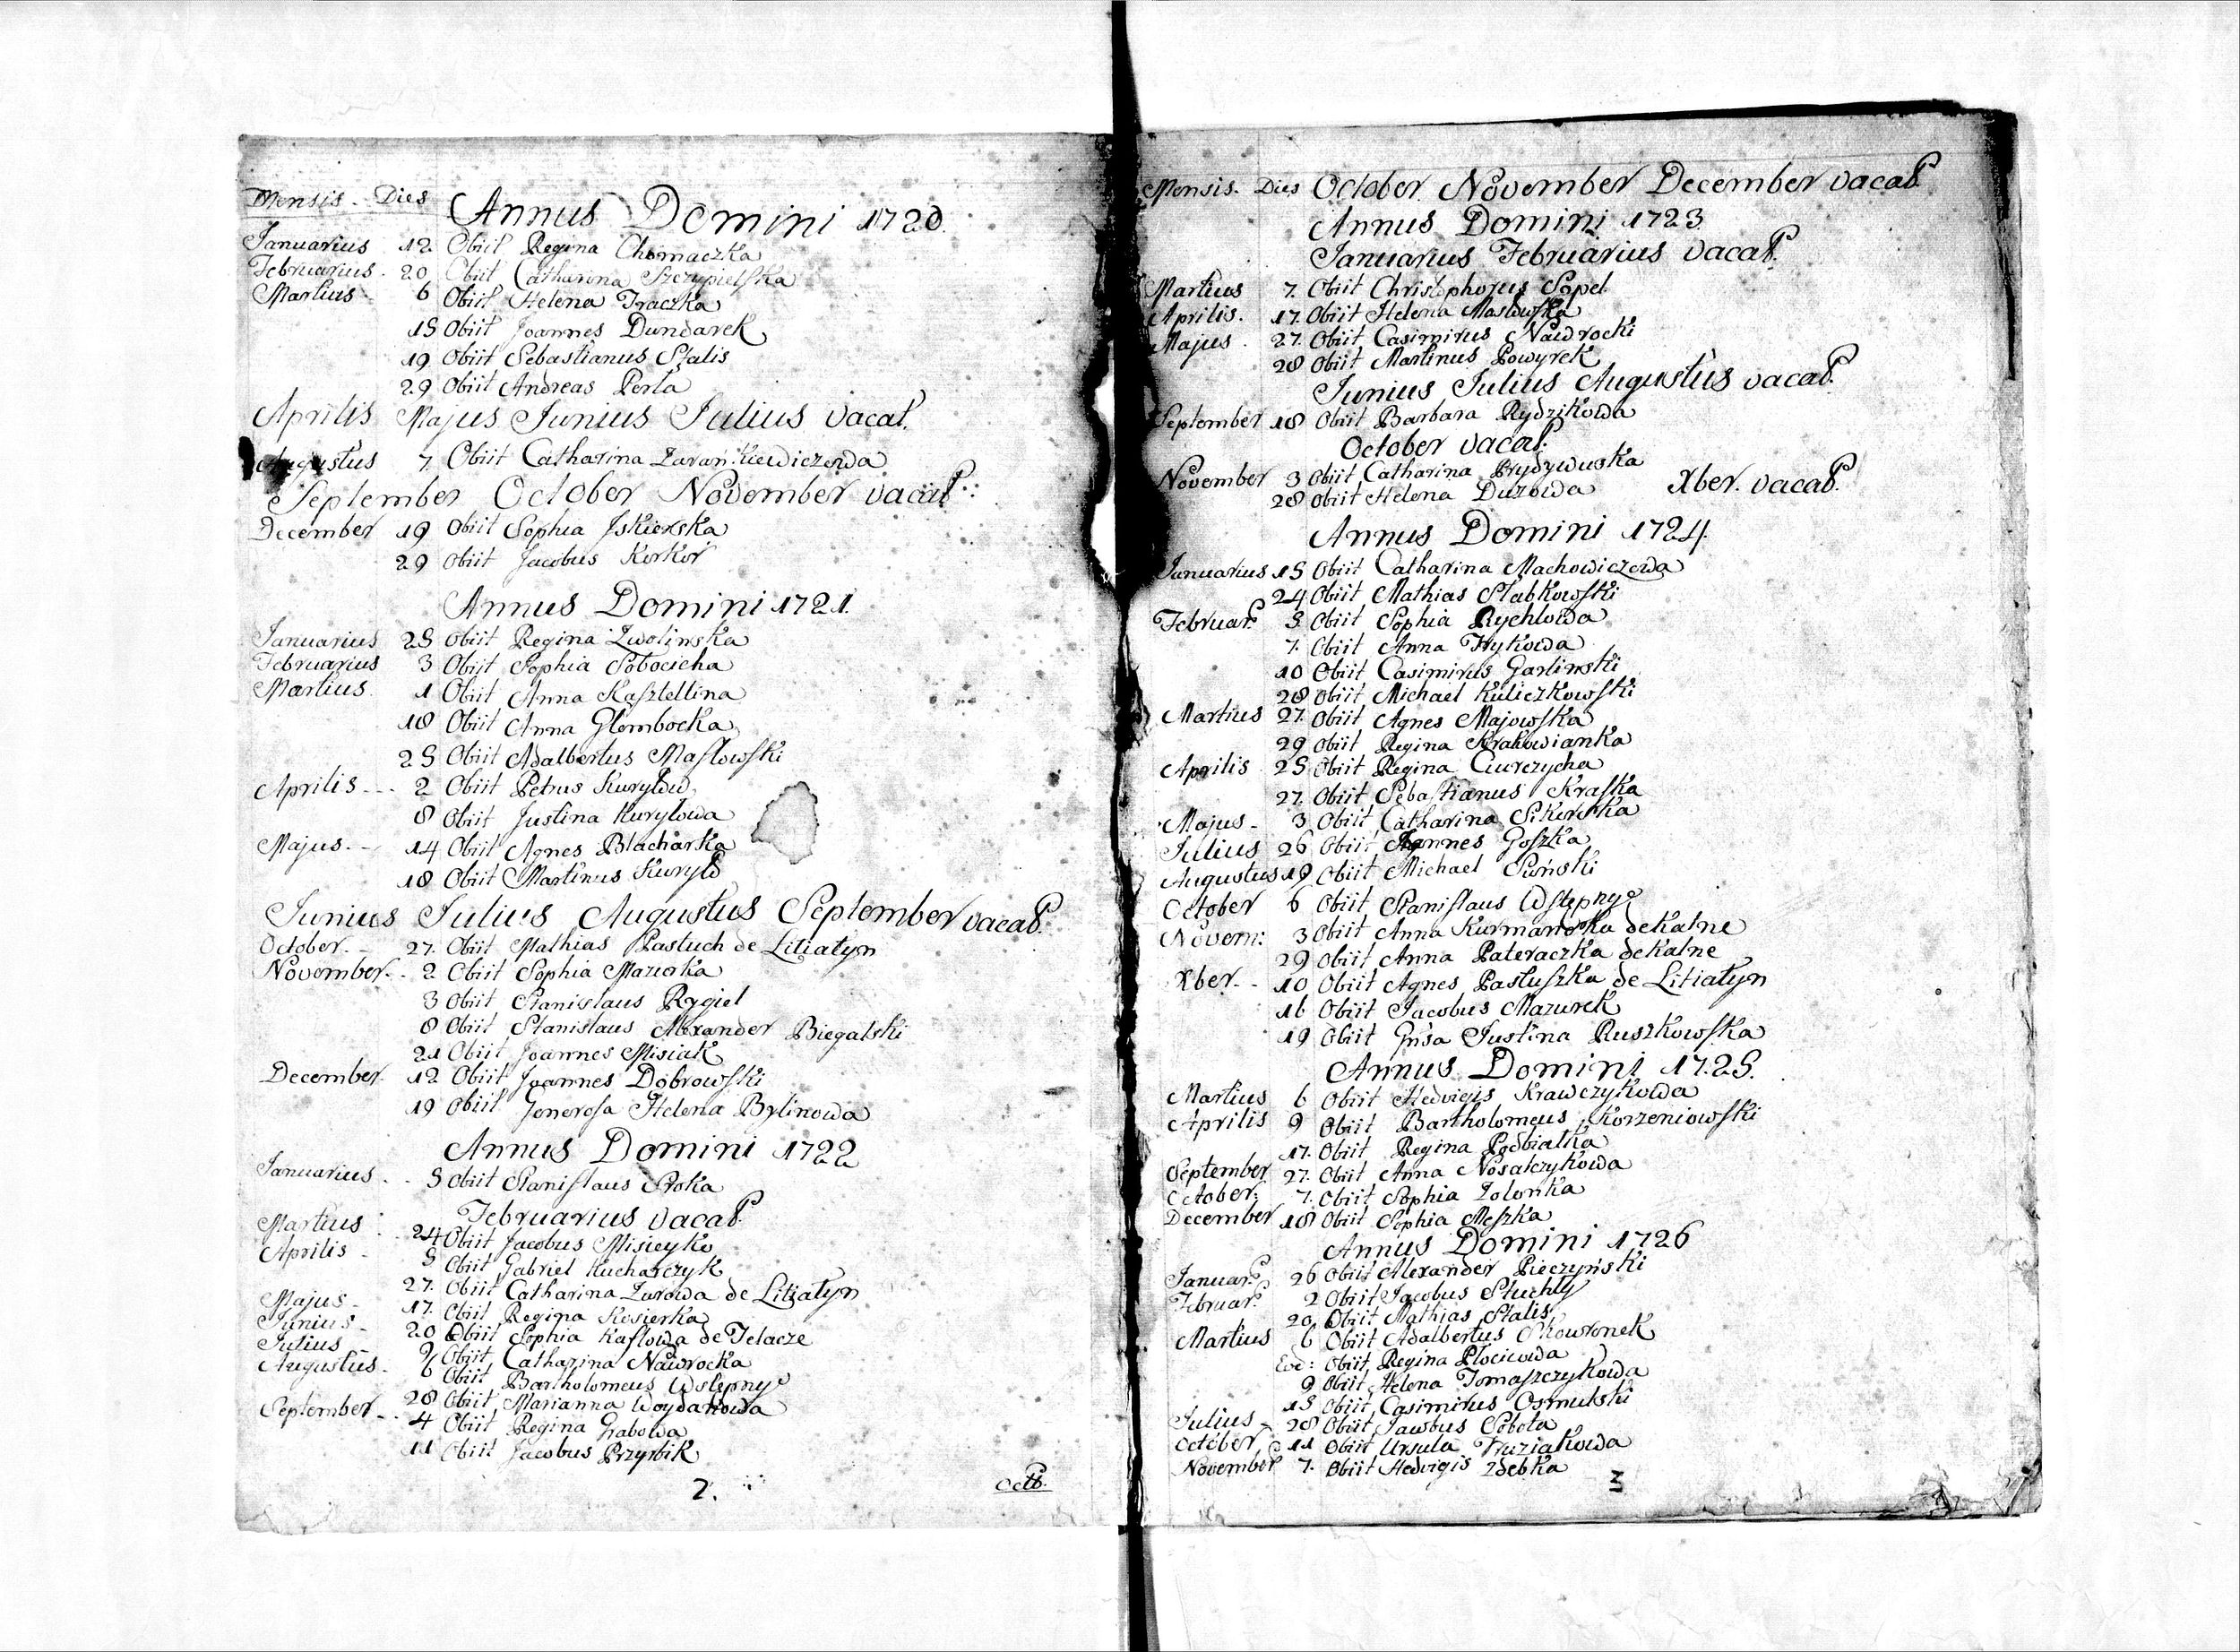 Mensis - Dies Annus Domini 1720.
Januarius 12 Obiit Regina Chomaczka
Februarius - 20 Obiit Catharina Szczypielska
Martius - 6 Obiit Helena Traczka
15 Obiit Joannes Dundarek
19 Obiit Sebastianus Stalis
29 Obiit Andreas Perla
Aprilis Majus Junius Julius vacat.
Augustus 7 Obiit Catharina Zarankiewiczowa
September October November vacat
December 19 Obiit Sophia Iskierska
29 Obiit Jacobus Korkor
Annus Domini 1721.
Januarius 25 Obiit Regina Zwolinska
Februarius 3 Obiit Sophia Sobocicha
Martius. 1 Obiit Anna Kasztellina
18 Obiit Anna Glombocka
25 Obiit Adalbertus Maslowski
Aprilis - - - 2 Obiit Petrus Kurylow
8 Obiit Justina Kurylowa
Majus. - - 14 Obiit Agnes Blacharka
18 Obiit Martinus Kurylo
Junius Julius Augustus September vacat.
October. - 27. Obiit Mathias Pastuch de Litiatyn
November. - 2 Obiit Sophia Mazurka
3 Obiit Stanislaus Rygiel
8 Obiit Stanislaus Alexander Biegalski
21 Obiit Joannes Misiak
December. 12 Obiit Joannes Dobrowski
19 Obiit Generosa Helena Bylinowa
Annus Domini 1722
Januarius. - 5 Obiit Stanislaus Sroka
Februarius vacat.
Martius - 24 Obiit Jacobus Misieyko
Aprilis - 5 Obiit Gabriel Kucharczyk
27. Obiit Catharina Zurowa de Litiatyn
Majus - 17. Obiit Regina Kosierka
Junius - 20 Obiit Sophia Kaslowa de Telacze
Julius - 9 Obiit Catharina Nawrocka
Augustus - 6 Obiit Bartholomeus Wstepny
28 Obiit Marianna Woydanowa
September - - 4 Obiit Regina Grabowa
11 Obiit Jacobus Przybik
2. Octb.
Mensis. Dies October November December vacat
Annus Domini 1723
Januarius Februarius vacat.
Martius 7. Obiit Christophorus Sopel
Aprilis. 17. Obiit Helena Maslowska
Majus. 27. Obiit Casimirus Nawrocki
28 Obiit Martinus Powyrek
Junius Julius Augustus vacat.
September 18 Obiit Barbara Rydzikowa
October vacat.
November 3 Obiit Catharina Prydywuska
28 Obiit Helena Duzowa Xber. vacat.
Annus Domini 1724.
Januarius 15 Obiit Catharina Machowiczowa
24 Obiit Mathias Slabkowski
Februar. 5. Obiit Sophia Rychlowa
7. Obiit Anna Hrykowa
10 Obiit Casimirus Garlinski
28 Obiit Michael Kuliczkowski
Martius 27. Obiit Agnes Majowska
29 Obiit Regina Krakowianka
Aprilis 25 Obiit Regina Ciurczycha
27. Obiit Sebastianus Kraska
Majus - 3 Obiit Catharina Sikorska
Julius 26 Obiit Joannes Goszka
Augustus 19 Obiit Michael Piński
October 6 Obiit Stanislaus Wstepny
Novem: 3 Obiit Anna Kurmanska de Kalne
29 Obiit Anna Pateraczka de Kalne
Xber - - 10 Obiit Agnes Pastuszka de Litiatyn
16 Obiit Jacobus Mazurek
19 Obiit Gnsa Justina Ruszkowska
Annus Domini 1725.
Martius 6 Obiit Hedvigis Krawczykowa
Aprilis 9 Obiit Bartholomeus Korzeniowski
17. Obiit Regina Podbialka
September 27. Obiit Anna Nosalczykowa
October. 7. Obiit Sophia Zolonka
December 18 Obiit Sophia Meszka
Annus Domini 1726
Januar. 26 Obiit Alexander Pieczyński
Februar. 2 Obiit Jacobus Stuchly
20 Obiit Mathias Stalis
Martius 6 Obiit Adalbertus Skowronek
Eod: Obiit Regina Plocicowa
9 Obiit Helena Tomaszczykowa
15 Obiit Casimirus Osmulski
Julius - 28 Obiit Jacobus Sobota
October 11 Obiit Ursula Druziakowa
November 7. Obiit Hedvigis Zdebka
3